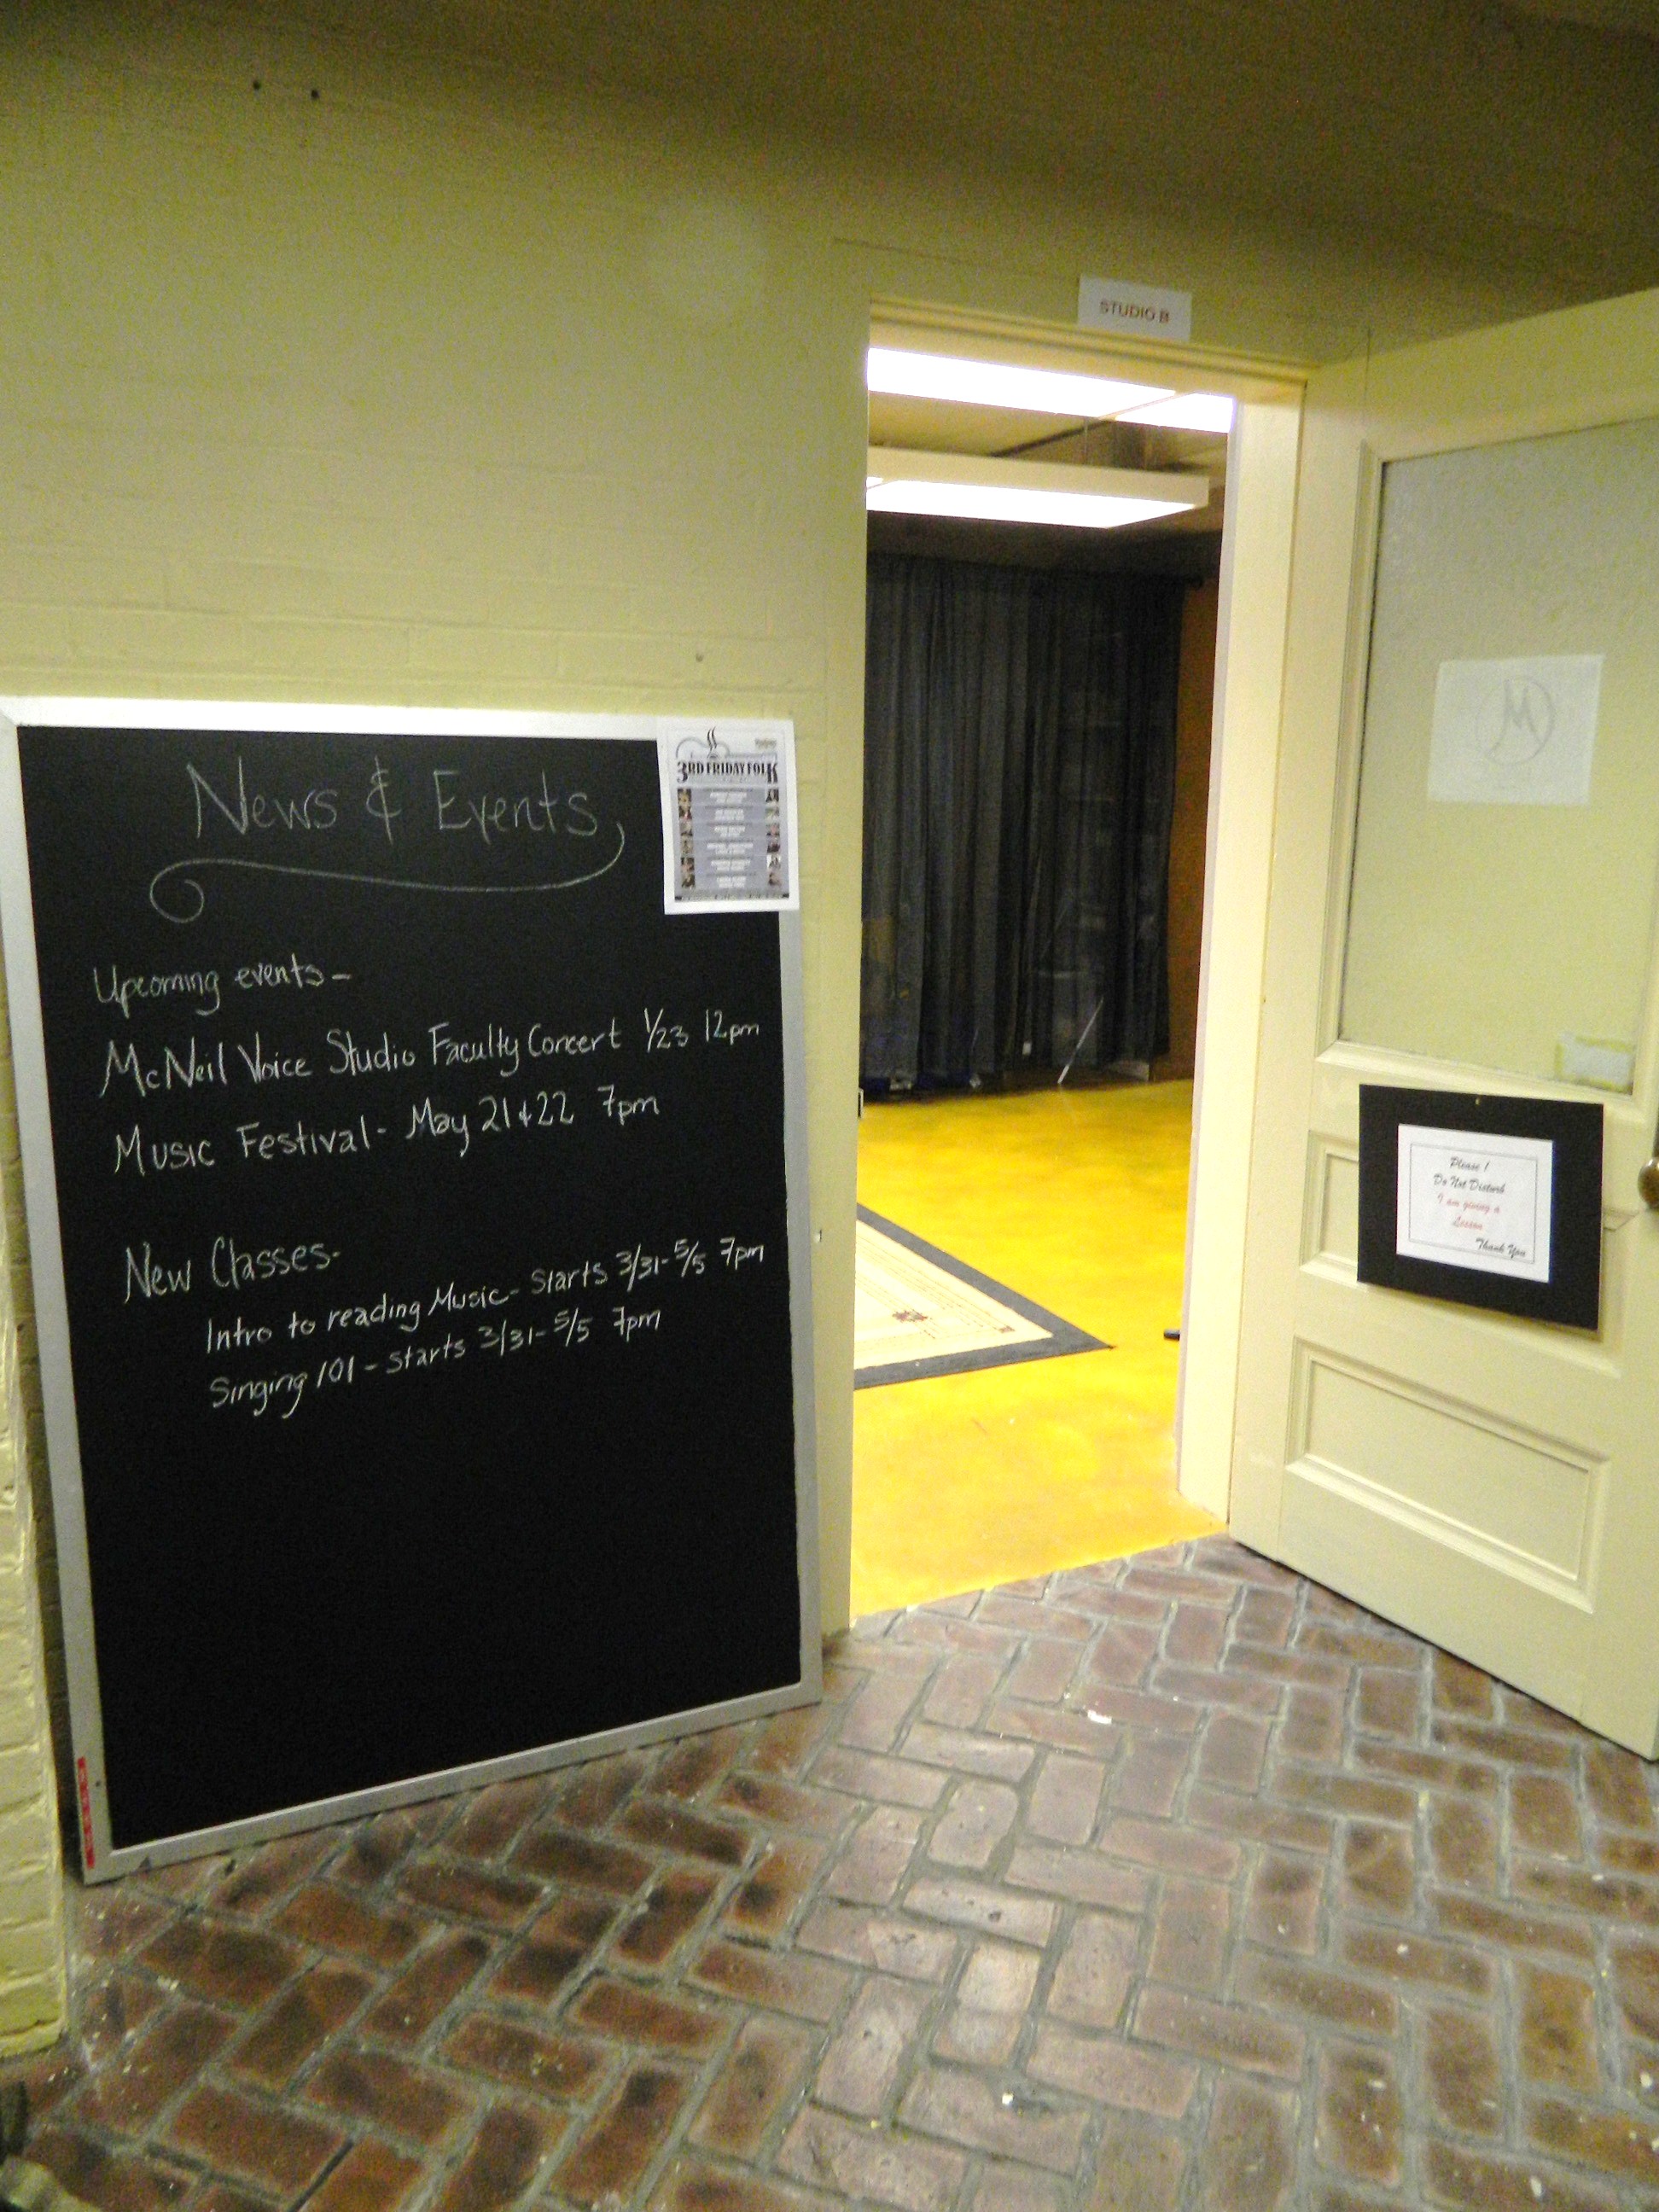 STUDIO B
News & Events
3RD FRIDAY FOLK
Upcoming events -
McNeil Voice Studio Faculty Concert 1/23 12pm
Music Festival - May 21 & 22 7pm
New Classes -
Intro to reading Music - Starts 3/31 - 5/5 7pm
Singing 101 - Starts 3/31 - 5/5 7pm
M
Please !
Do Not Disturb
I am giving a
Lesson
Thank You